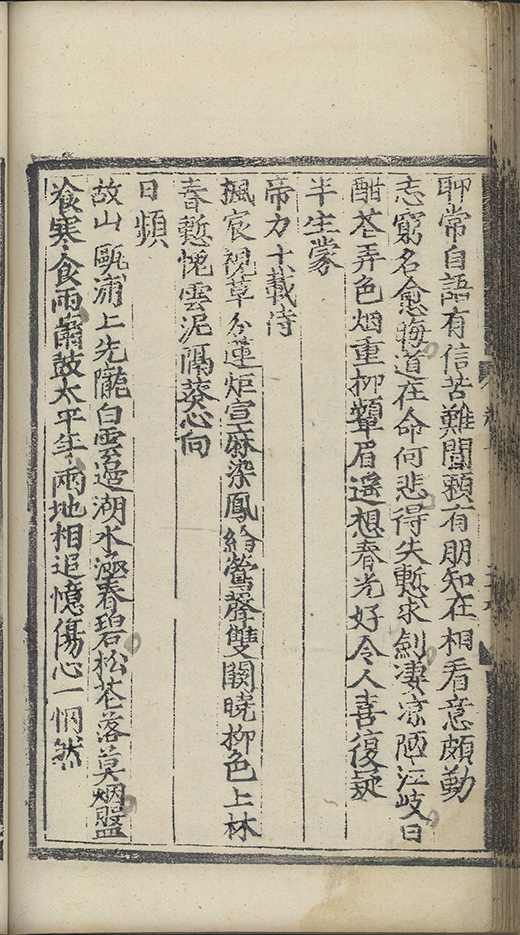 聊常自語有信苦難聞頼有朋知在相看意頗勤
志窮名愈晦道在命何悲得失慙求劍凄凉陋泣岐日
酣花弄色烟重柳顰眉遥想春光好令人喜復疑
半生蒙
帝力十載侍
楓宸視草分蓮炬宣麻染鳳綸鶯聲雙闕曉柳色上林
春慙愧雲泥隔葵心向
日頻
故山甌浦上先隴白雲邊湖水涵春碧松花落莫烟盤
飡寒食雨簫鼓太平年兩地相追憶傷心一惘然